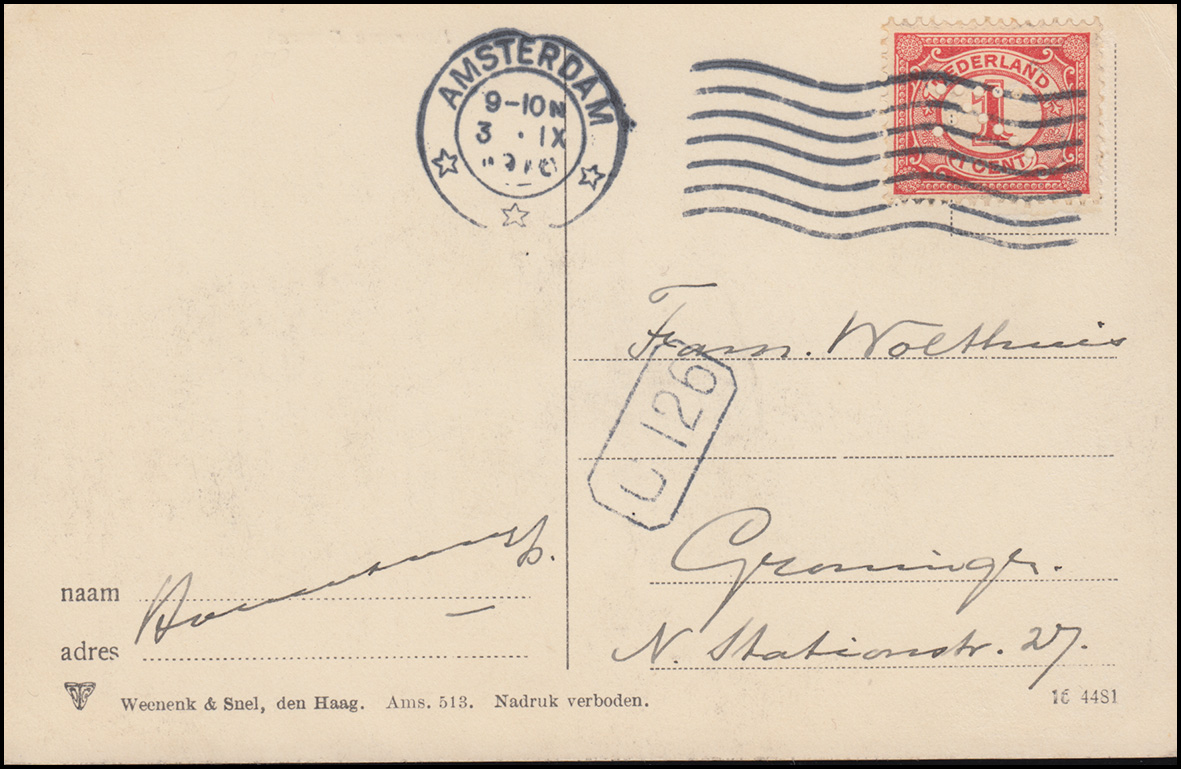 AMSTERDAM
9-10N
3 . IX
NEDERLAND
1
1 CENT
Fram. Wolthuis
126
Groningr.
N. Stationstr. 27.
naam
adres
Weenenk & Snel, den Haag. Ams. 513. Nadruk verboden.
4481